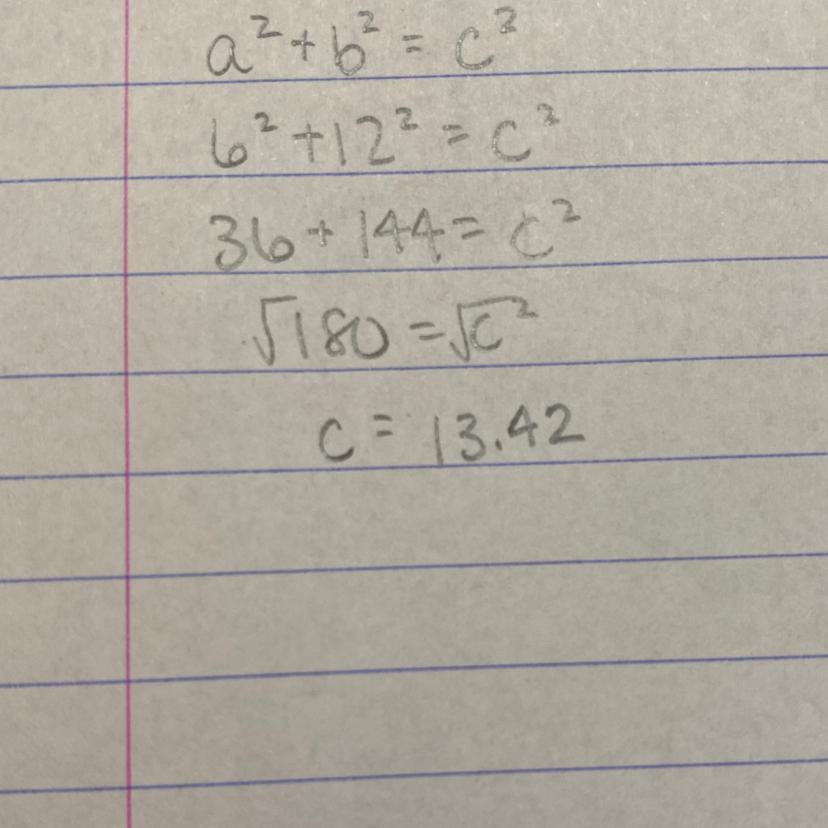 a² + b² = c²
6² + 12² = c²
36 + 144 = c²
√180 = √c²
c = 13.42